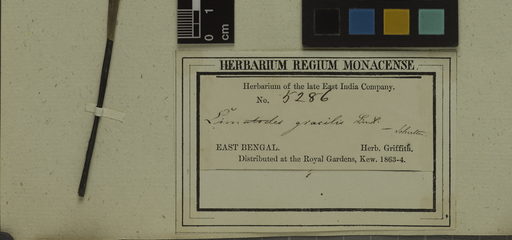 0 1
cm
HERBARIUM REGIUM MONACENSE
Herbarium of the late East India Company.
No. 5286
Limatodes gracilis Lindl. —
EAST BENGAL. Herb. Griffith,
Distributed at the Royal Gardens, Kew. 1863-4.